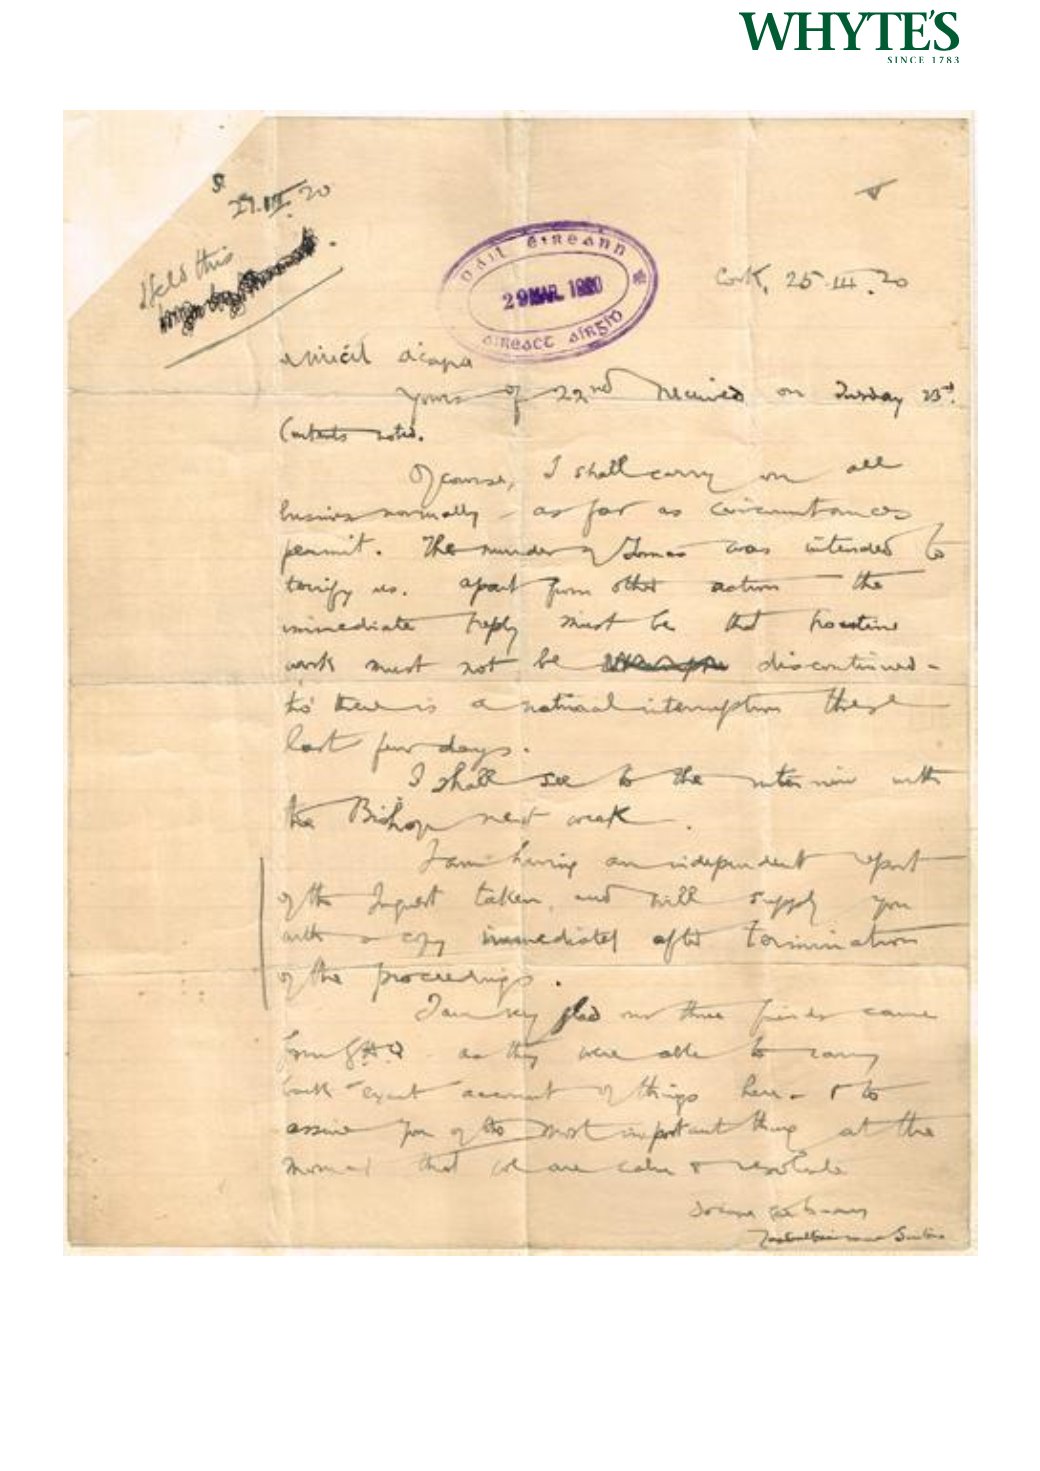 WHYTE'S
SINCE 1783
27.III.20
Held this
DÁIL ÉIREANN
29 MAR. 1920
AIREACT AIRGID
Cork, 25.III.20
a Micíl a cara
Yours of 22nd received on Tuesday 23rd.
Contents noted.
Of course, I shall carry on all
business normally - as far as circumstances
permit. The murder of Tomás was intended to
terrify us. Apart from other action the
immediate reply must be that routine
work must not be discontinued -
tho' there is a natural interruption these
last few days.
I shall see to the interview with
the Bishop next week.
I am having an independent report
of the Inquest taken, and will supply you
with a copy immediately after termination
of the proceedings.
I am very glad our three friends came
from GHQ as they were able to carry
back exact account of things here - & to
assure you of the most important thing at the
moment that we are calm & resolute